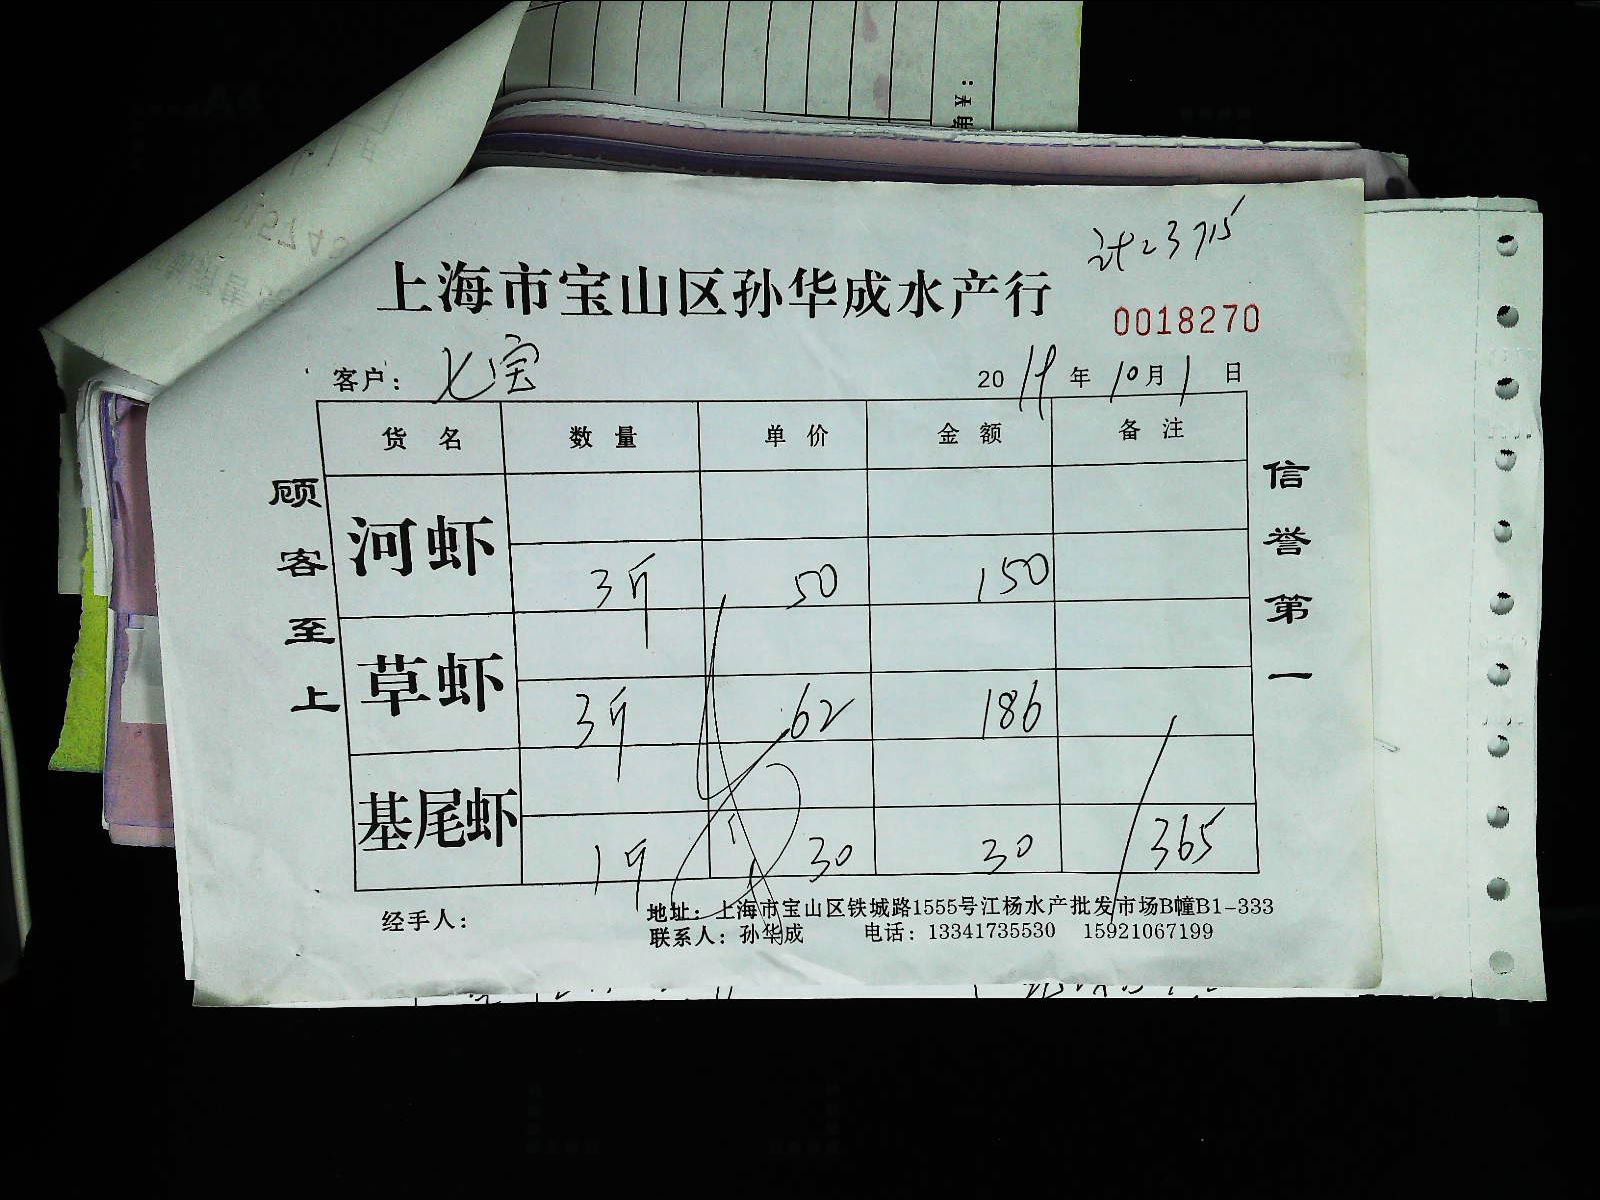 计:3715
上海市宝山区孙华成水产行
0018270
客户: 七宝 2019年10月1日
货名 数量 单价 金额 备注
河虾 3斤 50 150
草虾 3斤 62 186
基尾虾 1斤 30 30 365
顾客至上
信誉第一
经手人:
地址: 上海市宝山区铁城路1555号江杨水产批发市场B幢B1-333
联系人: 孙华成 电话: 13341735530 15921067199